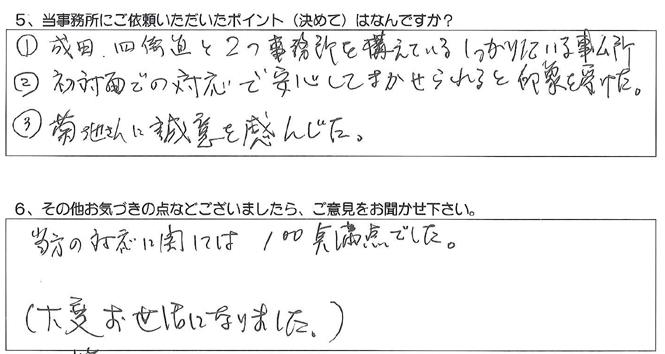 5、当事務所にご依頼いただいたポイント（決めて）はなんですか？
① 成田、四街道と2つ事務所を構えているしっかりしている事ム所
② 初対面での対応で安心してまかせられると印象を受けた。
③ 菊池さんに誠意を感んじた。
6、その他お気づきの点などございましたら、ご意見をお聞かせ下さい。
当方の対応に関しては 100点満点でした。
（大変お世話になりました。）